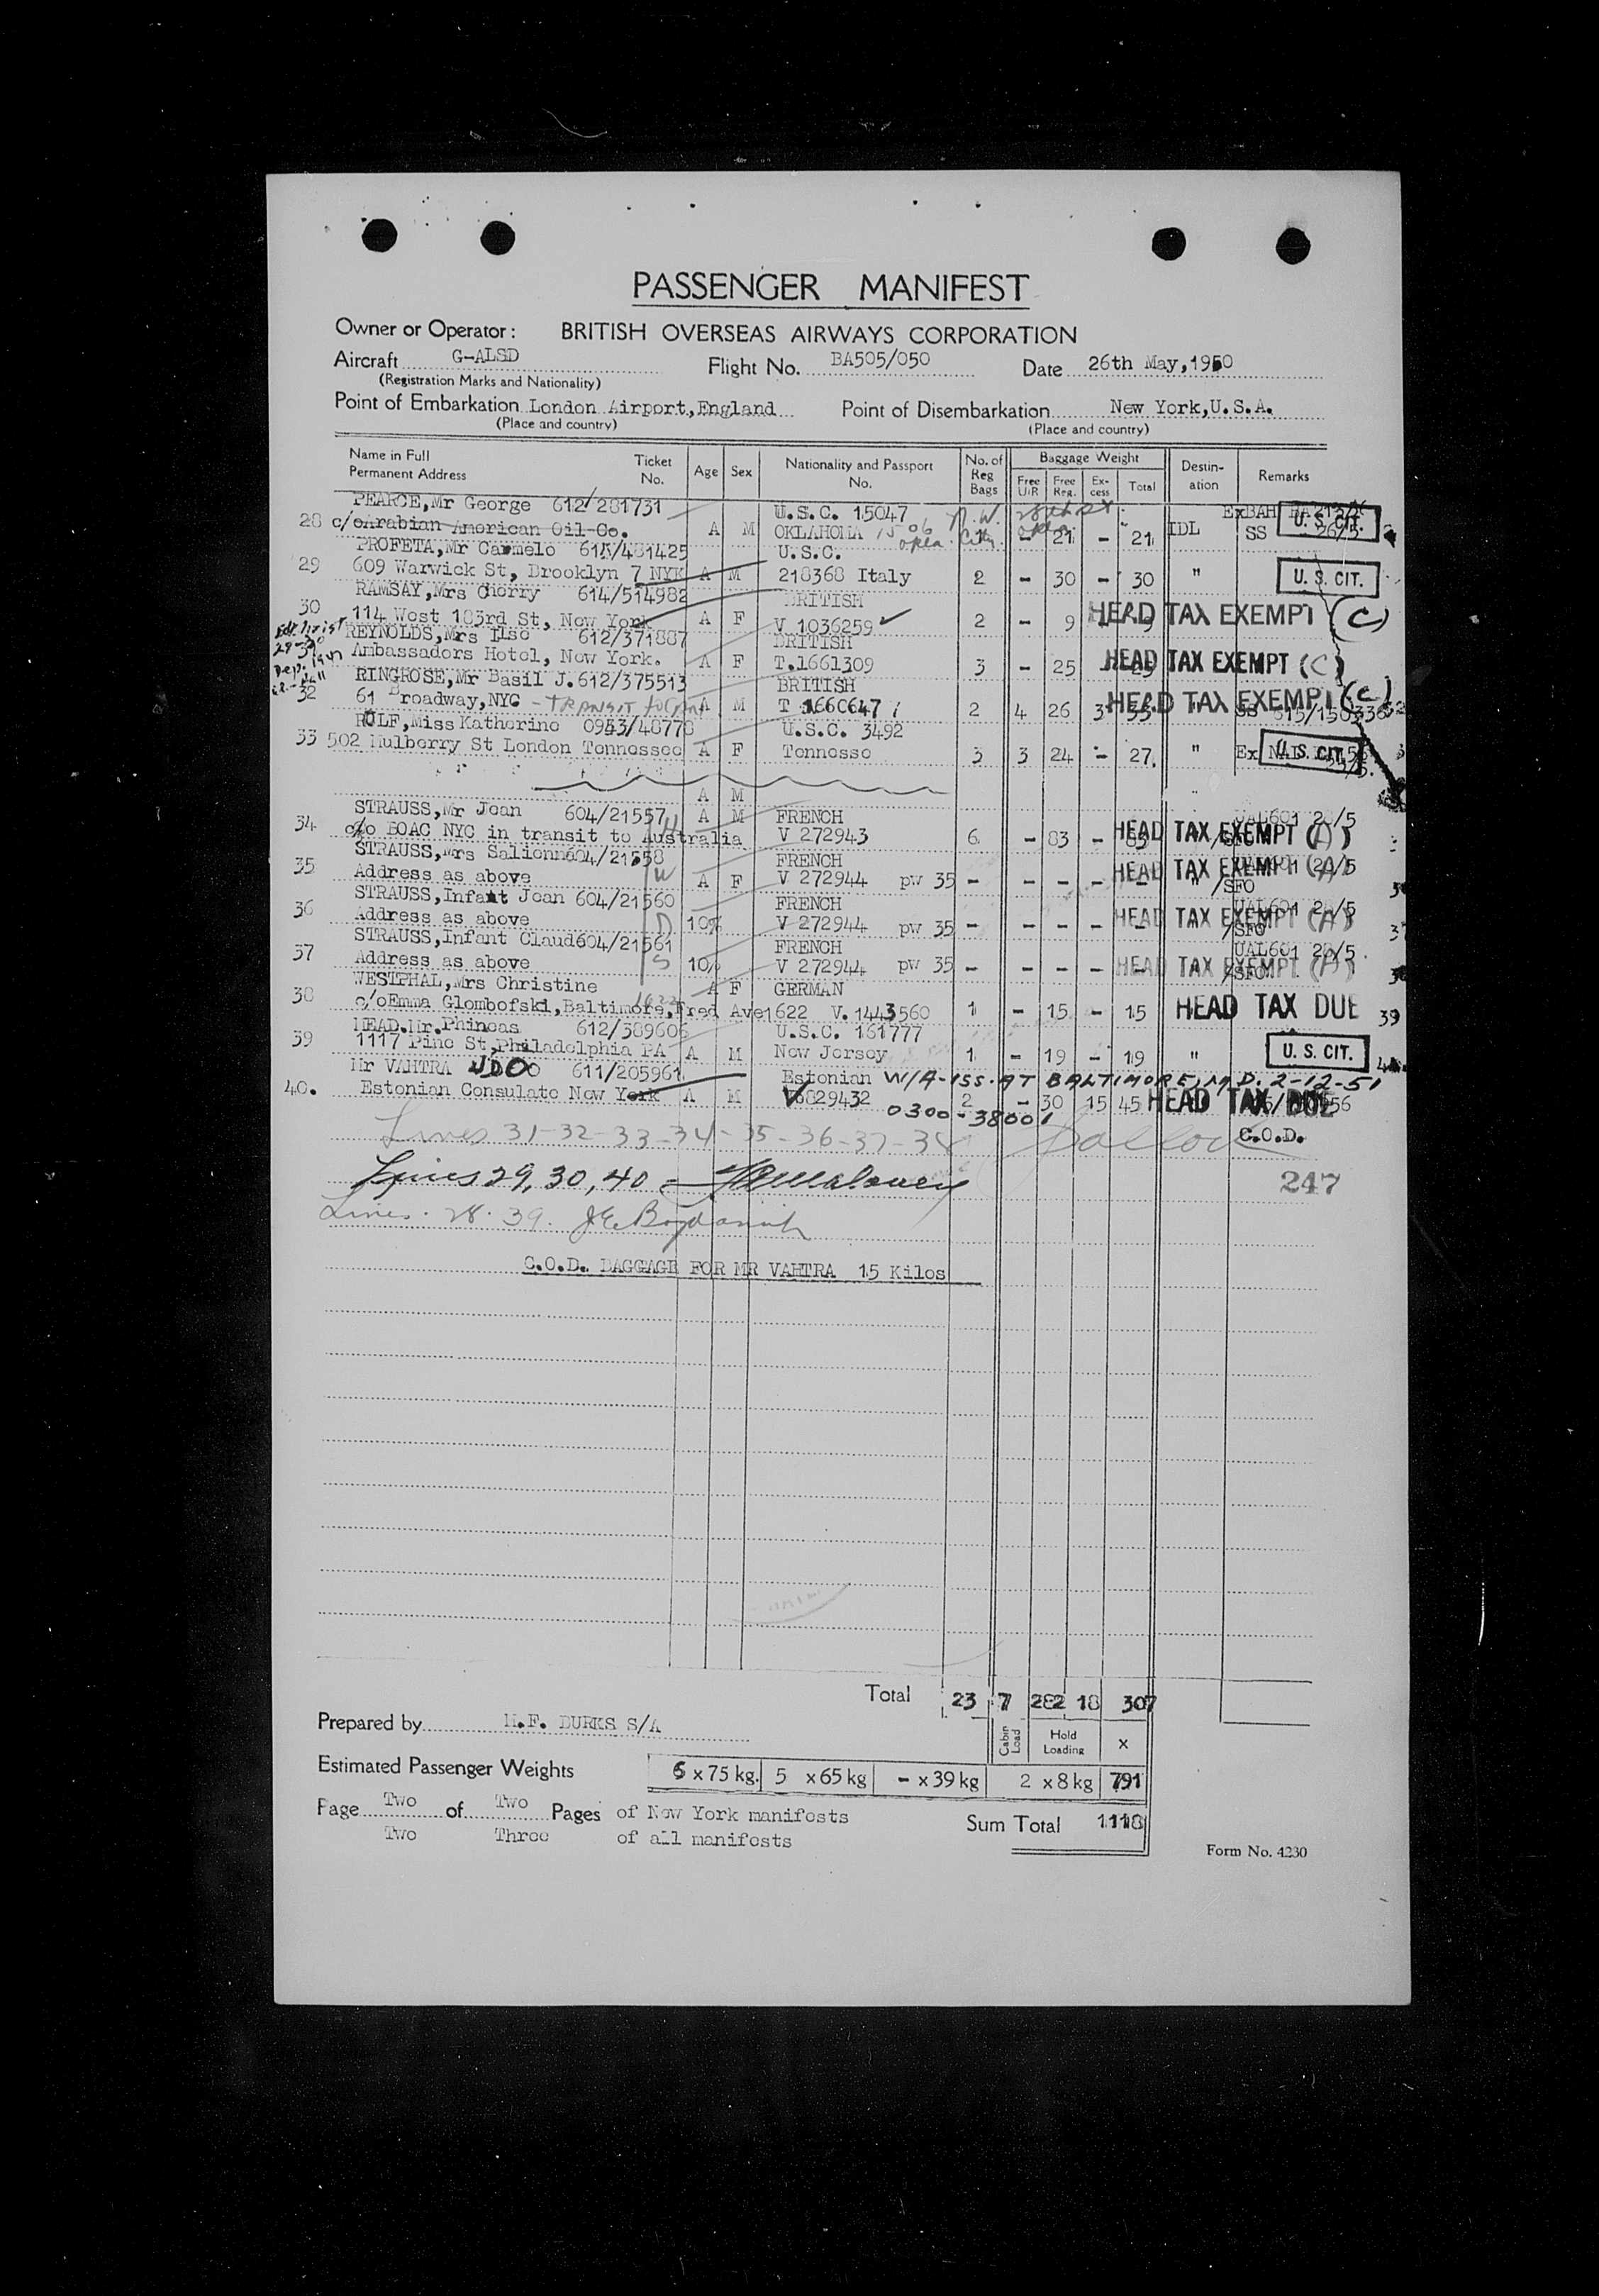 PASSENGER MANIFEST
Owner or Operator: BRITISH OVERSEAS AIRWAYS CORPORATION
Aircraft G-ALSD Flight No. BA505/050 Date 26th May,1950
(Registration Marks and Nationality)
Point of Embarkation London Airport,England Point of Disembarkation New York,U.S.A.
(Place and country) (Place and country)
Name in Full Permanent Address Ticket No. Age Sex Nationality and Passport No. No. of Reg Bags Baggage Weight Free U/R Free Reg. Ex-cess Total Destin-ation Remarks
PEARCE,Mr George 612/281731 U.S.C. 15047 N.W.
28 c/oArabian American Oil Co. A M OKLAHOMA 1506 Okla. City - 21 - 21 IDL SS 26/5 U. S. CIT.
PROFETA,Mr Carmelo 615/481425 U.S.C.
29 609 Warwick St, Brooklyn 7 NYK A M 218368 Italy 2 - 30 - 30 " U. S. CIT.
RAMSAY,Mrs Cherry 614/514982 BRITISH
30 114 West 183rd St, New York A F V 1036259 2 - 9 HEAD TAX EXEMPT (C)
REYNOLDS,Mrs Ilse 612/371887 BRITISH
Ambassadors Hotel, New York. A F T.1661309 3 - 25 - 25 HEAD TAX EXEMPT (C)
RINGROSE,Mr Basil J.612/375513 BRITISH
32 61 Broadway,NYC - TRANSIT A M T 1660647 2 4 26 3 33 HEAD TAX EXEMPT (C) SS
ROLF,Miss Katherine 0953/48778 U.S.C. 3492
33 502 Mulberry St London Tennessee A F Tennesse 3 3 24 - 27. " Ex U. S. CIT.
A M
STRAUSS,Mr Jean 604/21557 A M FRENCH UAL601 28/5
34 c/o BOAC NYC in transit to Australia V 272943 6 - 83 - 83 HEAD TAX EXEMPT (A)
STRAUSS,Mrs Salienne 604/21558 FRENCH
35 Address as above W A F V 272944 pw 35 - - - - - HEAD TAX EXEMPT (A) " /SFO
STRAUSS,Infant Jean 604/21560 FRENCH UAL601 28/5
36 Address as above 10% V 272944 pw 35 - - - - - HEAD TAX EXEMPT (A) /SFO
STRAUSS,Infant Claude 604/21561 FRENCH UAL601 28/5
37 Address as above S 10% V 272944 pw 35 - - - - - HEAD TAX EXEMPT (A) /SFO
WESTPHAL,Mrs Christine A F GERMAN
38 c/oEmma Glombofski,Baltimore,Fred Ave1622 V.1443560 1 - 15 - 15 HEAD TAX DUE 39
MEAD.Mr.Phineas 612/389606 U.S.C. 161777
39 1117 Pine St,Philadelphia PA A M New Jersey 1 - 19 - 19 " U. S. CIT.
Mr VAHTRA UDO 611/205961 Estonian W/A-ISS. AT BALTIMORE, MD. 2-12-51
40. Estonian Consulate New York A M V6829432 0300-38001 2 - 30 15 45 HEAD TAX DUE
Lines 31-32-33-34-35-36-37-38 C.O.D.
Lines 29, 30, 40 247
Lines. 28. 39.
C.O.D. BAGGAGE FOR MR VAHTRA 15 Kilos
Total 23 7 282 18 307
Prepared by M.F. BURKS S/A Cabin Load Hold Loading x
Estimated Passenger Weights 6 x 75 kg. 5 x 65 kg - x 39 kg 2 x 8 kg 791
Page Two of Two Pages of New York manifests Sum Total 1118
Two Three of all manifests
Form No. 4230